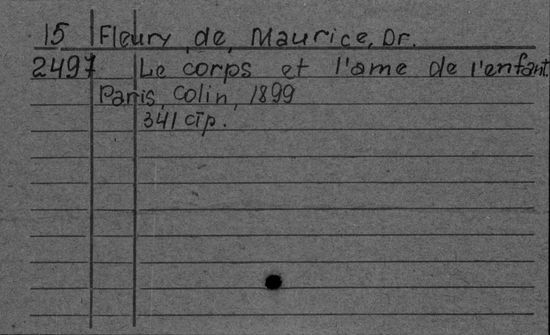 15 Fleury, de, Maurice, Dr.
2497 Le corps et l'ame de l'enfant
Paris, Colin, 1899
341 стр.